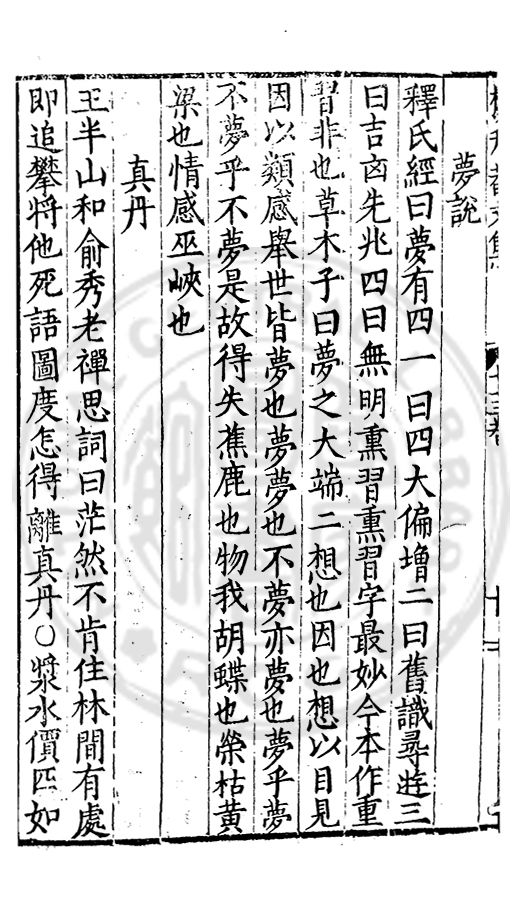 夢說
釋氏經曰夢有四一曰四大偏增二曰舊識尋遊三
曰吉凶先兆四曰無明熏習熏習字最妙今本作重
習非也草木子曰夢之大端二想也因也想以目見
因以類感舉世皆夢也夢夢也不夢亦夢也夢乎夢
不夢乎不夢是故得失蕉鹿也物我胡蝶也榮枯黃
梁也情感巫峽也
真丹
王半山和俞秀老禪思詞曰茫然不肯住林間有處
即追攀將他死語圖度怎得離真丹○漿水價匹如